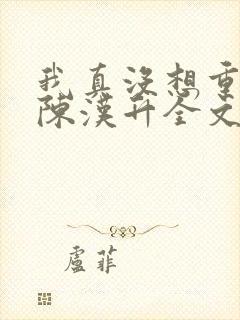 我真没想重
陈汉升全文
卢菲